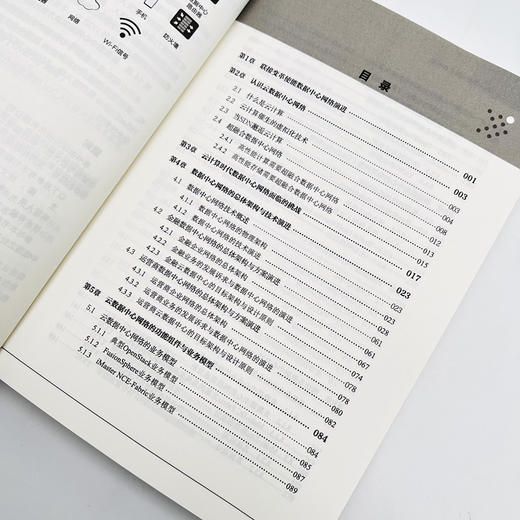 数据中心
路由器
手机
网络
防火墙
Wi-Fi信号
目录
第1章 联接变革使能数据中心网络演进 001
第2章 认识云数据中心网络 003
2.1 什么是云计算 003
2.2 云计算催生的虚拟化技术 004
2.3 当SDN邂逅云计算 008
2.4 超融合数据中心网络 012
2.4.1 高性能计算需要超融合数据中心网络 013
2.4.2 高性能存储需要超融合数据中心网络 015
第3章 云计算时代数据中心网络面临的挑战 017
第4章 数据中心网络的总体架构与技术演进 023
4.1 数据中心网络技术概述 023
4.1.1 数据中心网络的物理架构 023
4.1.2 数据中心网络的技术演进 028
4.2 金融数据中心网络的总体架构与方案演进 061
4.2.1 金融企业网络的总体架构 061
4.2.2 金融业务的发展诉求与数据中心网络的演进 067
4.2.3 金融云数据中心的目标架构与设计原则 074
4.3 运营商数据中心网络的总体架构与方案演进 078
4.3.1 运营商企业网络的总体架构 078
4.3.2 运营商业务的发展诉求与数据中心网络的演进 080
4.3.3 运营商云数据中心的目标架构与设计原则 082
第5章 云数据中心网络的功能组件与业务模型 084
5.1 云数据中心网络的业务模型 084
5.1.1 典型OpenStack业务模型 085
5.1.2 FusionSphere业务模型 087
5.1.3 iMaster NCE-Fabric业务模型 089